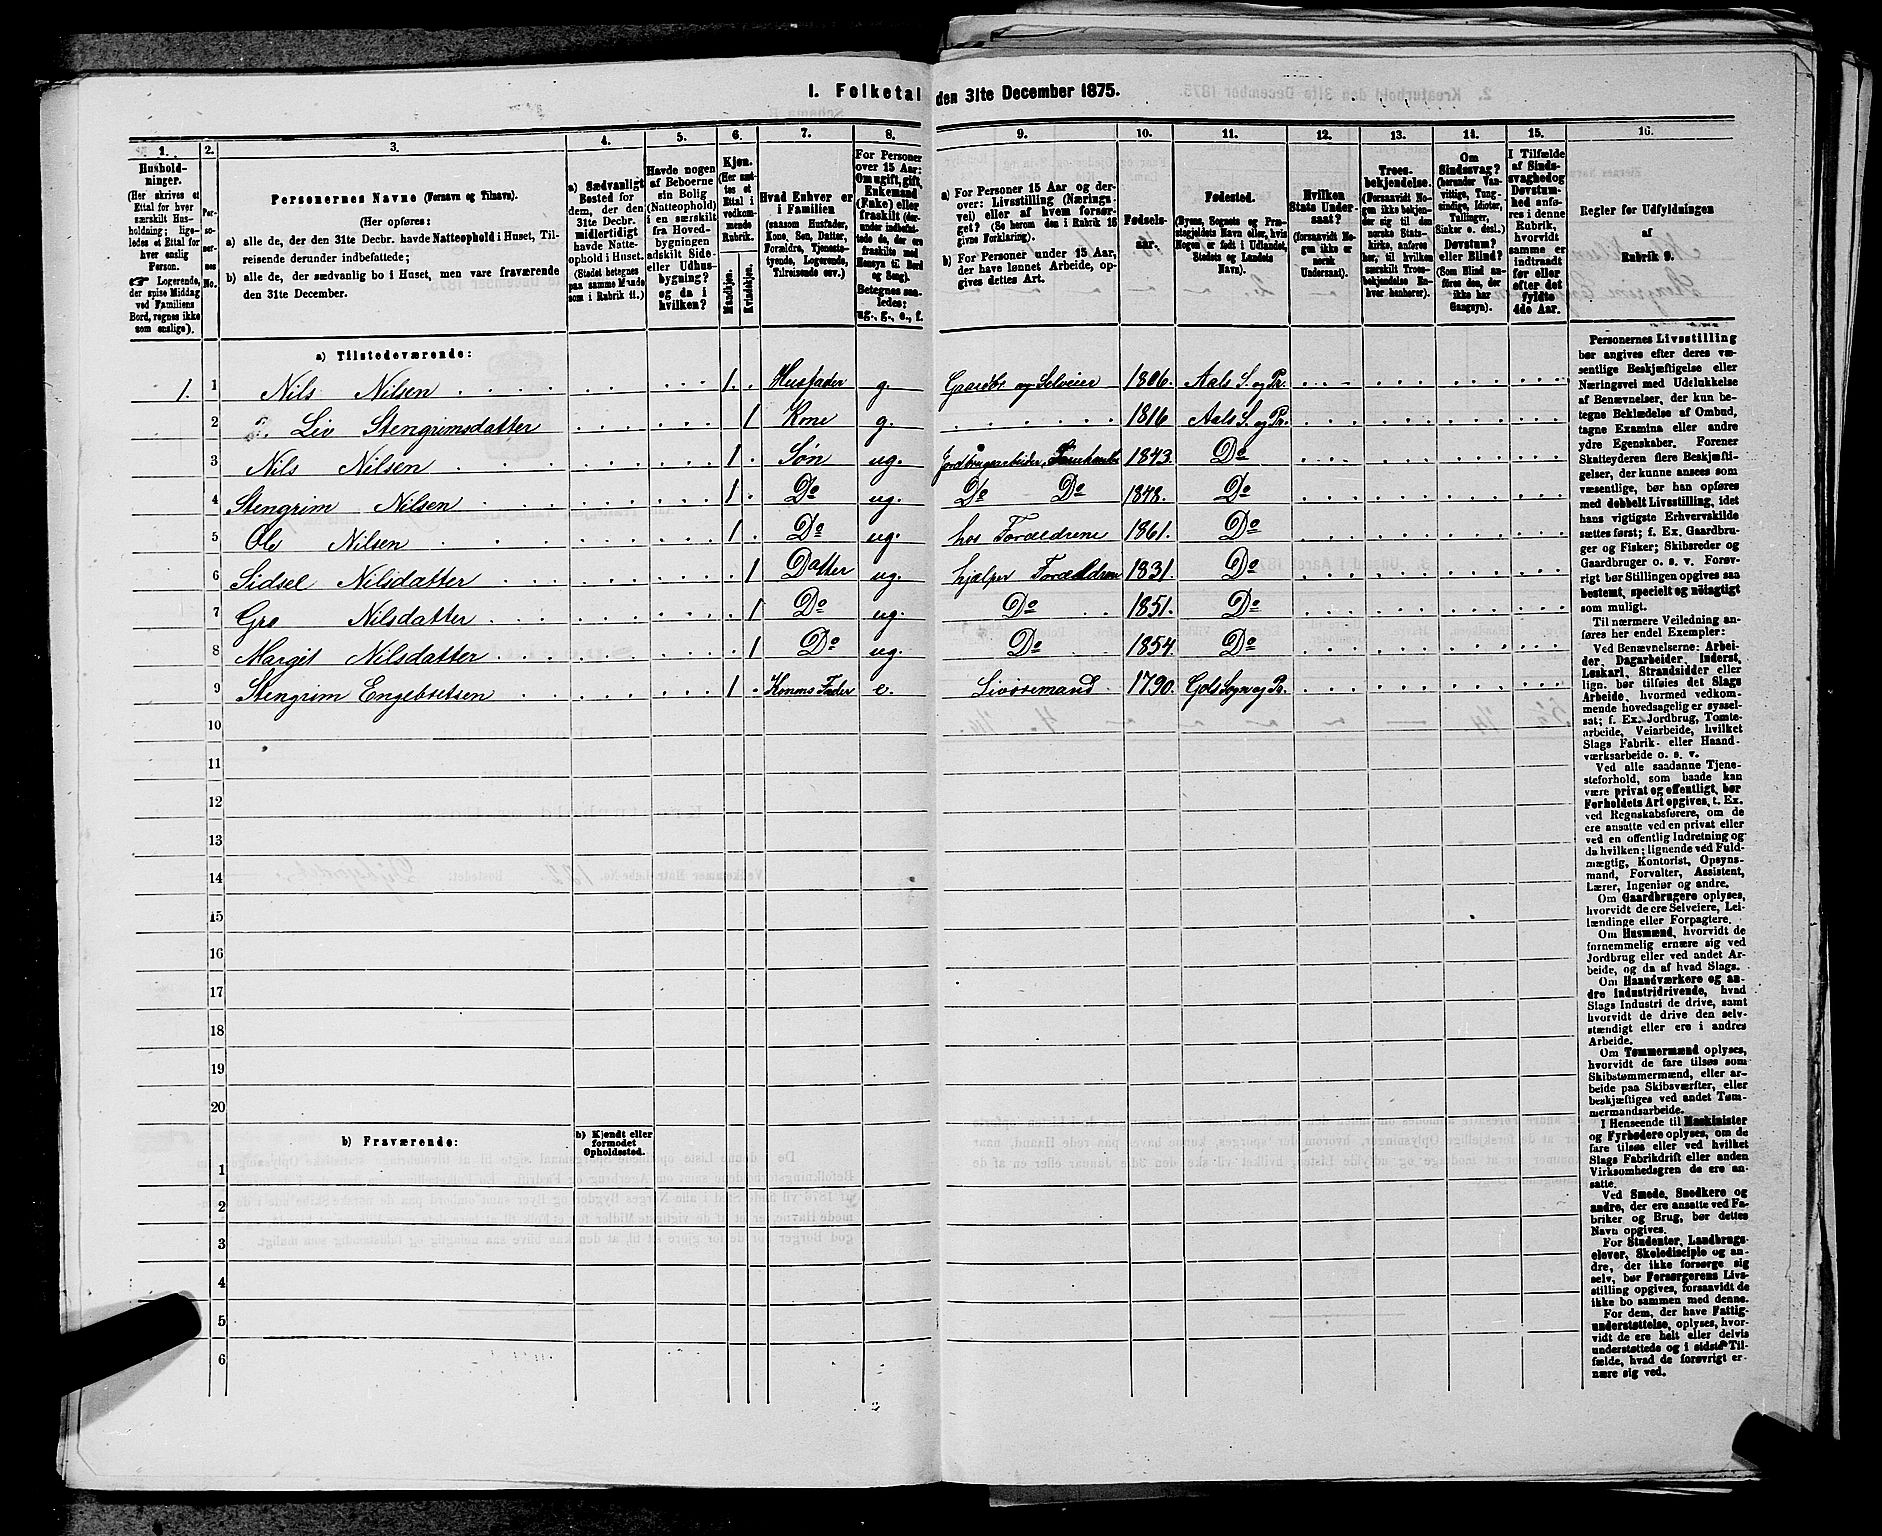 1. Folketal den 31te December 1875.
1. 2. 3. 4. 5. 6. 7. 8. 9. 10. 11. 12. 13. 14. 15. 16.
Hushold-
ninger.
(Her skrives et
Ettal for hver
særskilt Hus-
holdning; lige-
ledes et Ettal for
hver enslig
Person.
☞ Logerende,
der spise Middag
ved Familiens
Bord, regnes ikke
som enslige).
Per-
soner-
nes
No.
Personernes Navne (Fornavn og Tilnavn).
(Her opføres:
a) alle de, der den 31te Decbr. havde Natteophold i Huset, Til-
reisende derunder indbefattede;
b) alle de, der sædvanlig bo i Huset, men vare fraværende
den 31te December.
a) Sædvanligt
Bosted for
dem, der den
31te Decbr.
midlertidigt
havde Natte-
ophold i Huset.
(Stedet betegnes
paa samme Maade
som i Rubrik 11.)
Havde nogen
af Beboerne
sin Bolig
(Natteophold)
i en særskilt
fra Hoved-
bygningen
adskilt Side-
eller Udhus-
bygning?
og da i
hvilken?
Kjøn.
(Her sæt-
tes et
Ettal i
vedkom-
mende
Rubrik.
Mandkjøn.
Kvindekjøn.
Hvad Enhver er
i Familien
(saasom Husfader,
Kone, Søn, Datter,
Forældre, Tjeneste-
tyende, Logerende,
Tilreisende osv.)
For Personer
over 15 Aar:
Om ugift, gift,
Enkemand
(Enke) eller
fraskilt (der-
under indbefat-
tede de, der ere
fraskilte med
Hensyn til Bord
og Seng).
Betegnes saa-
ledes:
ug., g., e., f.
a) For Personer 15 Aar og der-
over: Livsstilling (Nærings-
vei) eller af hvem forsør-
get? (Se herom den i Rubrik 16
givne Forklaring).
b) For Personer under 15 Aar,
der have lønnet Arbeide, op-
gives dettes Art.
Fødsels-
aar.
Fødested.
(Byens, Sognets og Præ-
stegjeldets Navn eller, hvis
Nogen er født i Udlandet,
Stedets og Landets
Navn).
Hvilken
Stats Under-
saat?
(forsaavidt No-
gen ikke er
norsk
Undersaat).
Troes-
bekjendelse.
(Forsaavidt No-
gen ikke bekjen-
der sig til den
norske Stats-
kirke, anføres
her, til hvilken
særskilt Troes-
bekjendelse En-
hver henhører).
Om
Sindssvag?
(herunder Van-
vittige, Tung-
sindige, Idioter,
Tullinger,
Sinker o. desl.)
Døvstum?
eller Blind?
(Som Blind an-
føres den, der
ikke har
Gangsyn).
I Tilfælde
af Sinds-
svaghed og
Døvstum-
hed anfø-
res i denne
Rubrik,
hvorvidt
samme er
indtraadt
før eller
efter det
fyldte
4de Aar.
Regler for Udfyldningen
af
Rubrik 9.
a) Tilstedeværende:
1. 1 Nils Nilsen 1. Husfader g. Gaardbr og Selveier 1806. Aals S. og Pr.
2 Liv Stengrimsdatter 1 Kone g. 1816 Aals S. og Pr.
3 Nils Nilsen 1 Søn ug. Jordbrugsarbeider, 1843. Do
4 Stengrim Nilsen 1 Do ug. Do Do 1848. Do
5 Ole Nilsen 1 Do ug. hos Forældrene 1861. Do
6 Sidsel Nilsdatter 1 Datter ug. hjælper Forældren 1831. Do
7 Gro Nilsdatter 1 Do ug. Do 1851. Do
8 Margit Nilsdatter 1 Do ug. Do 1854. Do
9 Stengrim Engebretsen 1 Konens Fader e. Livøremand 1790. Gols Sogn og Pr.
10
11
12
13
14
15
16
17
18
19
20
b) Fraværende:
b) Kjendt eller
formodet
Opholdssted.
1
2
3
4
5
6
Personernes Livsstilling
bør angives efter deres væ-
sentlige Beskjæftigelse eller
Næringsvei med Udelukkelse
af Benævnelser, der kun be-
tegne Beklædelse af Ombud,
tagne Examina eller andre
ydre Egenskaber. Forener
Skatteyderen flere Beskjæfti-
gelser, der kunne ansees som
væsentlige, bør han opføres
med dobbelt Livsstilling, idet
hans vigtigste Erhvervskilde
sættes først; f. Ex. Gaardbru-
ger og Fisker; Skibsreder og
Gaardbruger o. s. v. Forøv-
rigt bør Stillingen opgives saa
bestemt, specielt og nøiagtigt
som muligt.
Til nærmere Veiledning an-
føres her endel Exempler:
Ved Benævnelserne: Arbei-
der, Dagarbeider, Inderst,
Løskarl, Strandsidder eller
lign. bør tilføies det Slags
Arbeide, hvormed vedkom-
mende hovedsagelig er syssel-
sat; f. Ex. Jordbrug, Tomte-
arbeide, Veiarbeide, hvilket
Slags Fabrik- eller Haand-
værksarbeide o. s. v.
Ved alle saadanne Tjene-
steforhold, som baade kan
være privat og offentligt, bør
Forholdets Art opgives, t. Ex.
ved Regnskabsførere, om de
ere ansatte ved en privat eller
ved en offentlig Indretning og
da hvilken; lignende ved Fuld-
mægtig, Kontorist, Opsyns-
mand, Forvalter, Assistent,
Lærer, Ingeniør og andre.
Om Gaardbrugere oplyses,
hvorvidt de ere Selveiere, Lei-
lændinge eller Forpagtere.
Om Husmænd, hvorvidt de
fornemmelig ernære sig ved
Jordbrug eller ved andet Ar-
beide, og da af hvad Slags.
Om Haandværkere og an-
dre industridrivende, hvad
Slags Industri de drive, samt
hvorvidt de drive den selv-
stændigt eller ere i andres
Arbeide.
Om Tømmermænd oplyses,
hvorvidt de fare tilsøs som
Skibstømmermænd, eller ar-
beide paa Skibsværfter, eller
beskjæftiges ved andet Tøm-
mermandsarbeide.
I Henseende til Maskinister
og Fyrbødere oplyses, om de
fare tilsøs eller ved hvilket
Slags Fabrikdrift eller anden
Virksomhedsgren de ere an-
satte.
Ved Smede, Snedkere og
andre, der ere ansatte ved Fa-
briker og Brug, bør dettes
Navn opgives.
For Studenter, Landbrugs-
elever, Skoledisciple og an-
dre, der ikke forsørge sig
selv, bør Forsørgerens Livs-
stilling opgives, forsaavidt de
ikke bo sammen med denne.
For dem, der have Fattig-
understøttelse, oplyses, hvor-
vidt de ere helt eller delvis
understøttede og i sidste Til-
fælde, hvad de forøvrigt er-
nære sig ved.